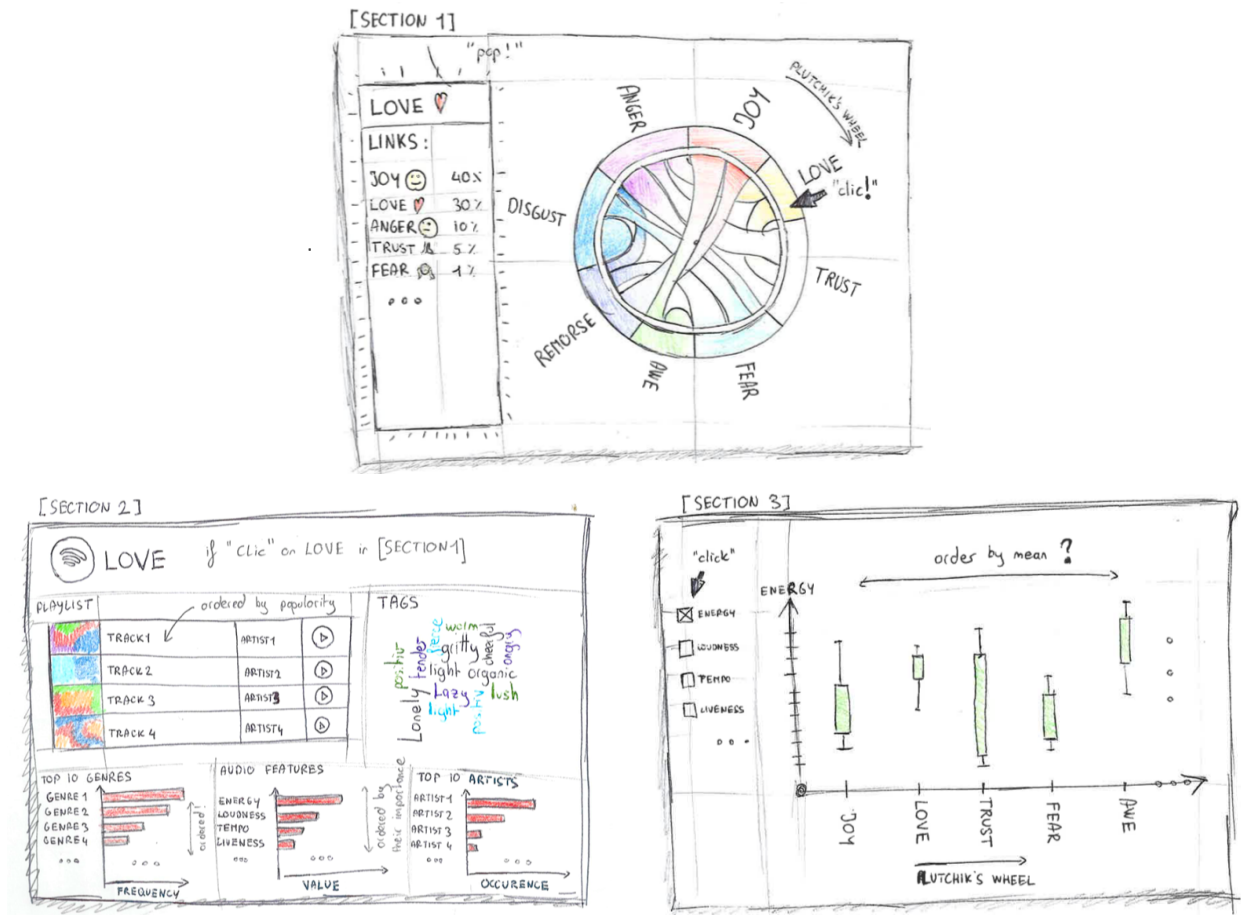 [SECTION 1]
"pop!"
LOVE
LINKS:
JOY 40%
LOVE 30%
ANGER 10%
TRUST 5%
FEAR 1%
ANGER
JOY
PLUTCHIK'S WHEEL
LOVE
"clic!"
DISGUST
TRUST
REMORSE
AWE
FEAR
[SECTION 2]
LOVE if "CLIC" on LOVE in [SECTION1]
PLAYLIST
ordered by popularity
TRACK1 ARTIST1
TRACK2 ARTIST2
TRACK 3 ARTIST3
TRACK 4 ARTIST4
TAGS
warm
positiv
tender
gritty
cheerful
angry
light organic
Lonely
Lazy
lush
light
positiv
TOP 10 GENRES
GENRE 1
GENRE 2
GENRE 3
GENRE 4
ordered!
FREQUENCY
AUDIO FEATURES
ENERGY
LOUDNESS
TEMPO
LIVENESS
ordered by
their importance
VALUE
TOP 10 ARTISTS
ARTIST 1
ARTIST 2
ARTIST 3
ARTIST 4
OCCURENCE
[SECTION 3]
"click"
ENERGY
LOUDNESS
TEMPO
LIVENESS
ENERGY
order by mean ?
JOY
LOVE
TRUST
FEAR
AWE
PLUTCHIK'S WHEEL